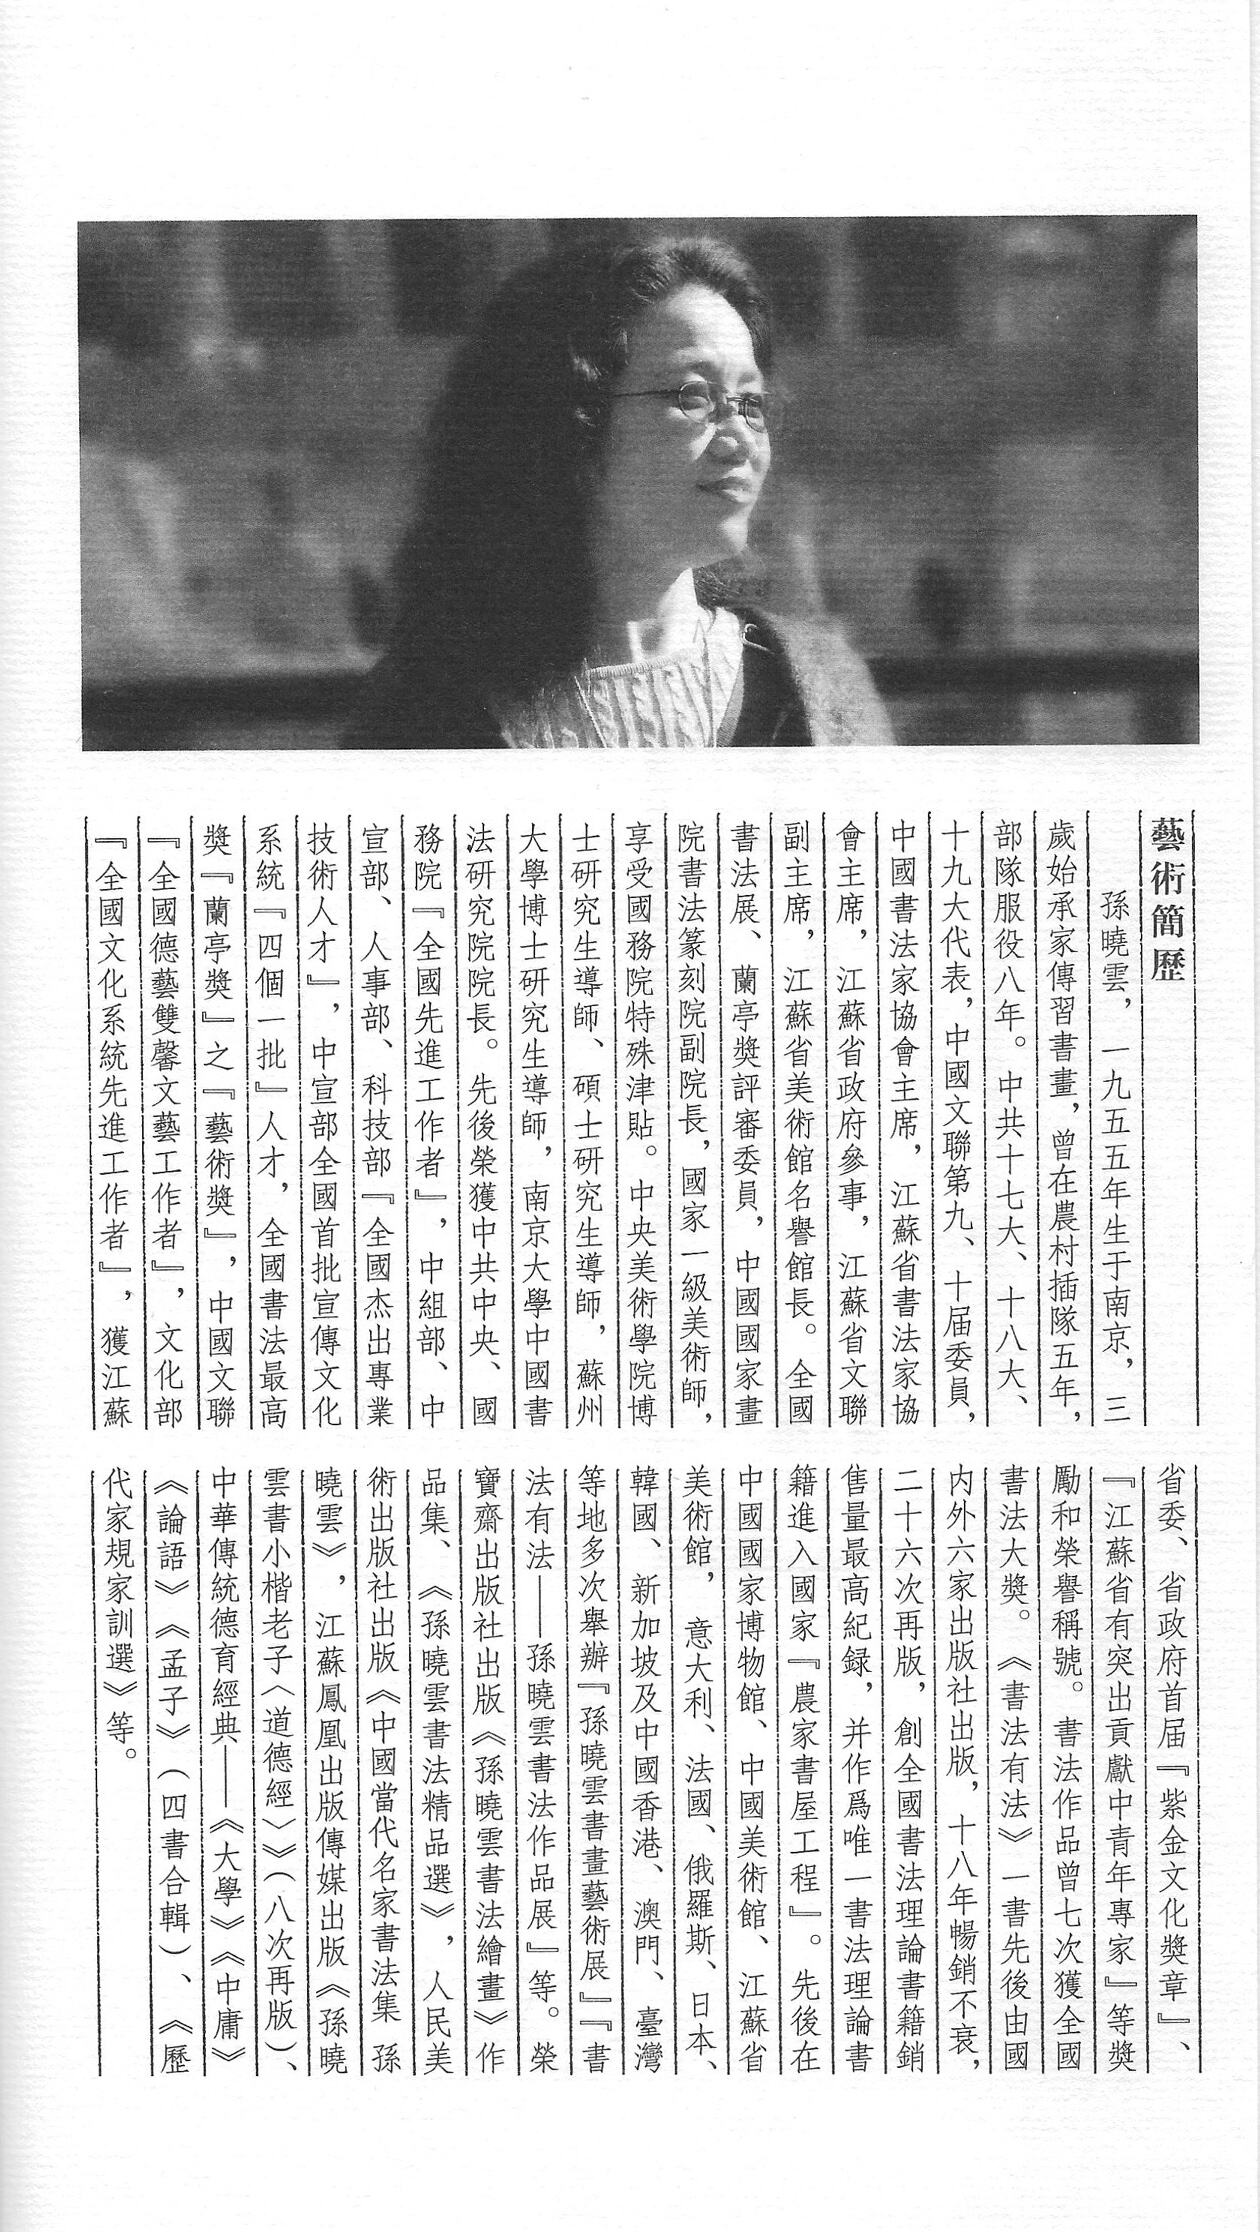 藝術簡歷
孫曉雲，一九五五年生于南京，三
歲始承家傳習書畫，曾在農村插隊五年，
部隊服役八年。中共十七大、十八大、
十九大代表，中國文聯第九、十届委員，
中國書法家協會主席，江蘇省書法家協
會主席，江蘇省政府參事，江蘇省文聯
副主席，江蘇省美術館名譽館長。全國
書法展、蘭亭獎評審委員，中國國家畫
院書法篆刻院副院長，國家一級美術師，
享受國務院特殊津貼。中央美術學院博
士研究生導師、碩士研究生導師，蘇州
大學博士研究生導師，南京大學中國書
法研究院院長。先後榮獲中共中央、國
務院『全國先進工作者』，中組部、中
宣部、人事部、科技部『全國杰出專業
技術人才』，中宣部全國首批宣傳文化
系統『四個一批』人才，全國書法最高
獎『蘭亭獎』之『藝術獎』，中國文聯
『全國德藝雙馨文藝工作者』，文化部
『全國文化系統先進工作者』，獲江蘇
省委、省政府首届『紫金文化獎章』、
『江蘇省有突出貢獻中青年專家』等獎
勵和榮譽稱號。書法作品曾七次獲全國
書法大獎。《書法有法》一書先後由國
内外六家出版社出版，十八年暢銷不衰，
二十六次再版，創全國書法理論書籍銷
售量最高紀録，并作爲唯一書法理論書
籍進入國家『農家書屋工程』。先後在
中國國家博物館、中國美術館、江蘇省
美術館，意大利、法國、俄羅斯、日本、
韓國、新加坡及中國香港、澳門、臺灣
等地多次舉辦『孫曉雲書畫藝術展』『書
法有法——孫曉雲書法作品展』等。榮
寶齋出版社出版《孫曉雲書法繪畫》作
品集、《孫曉雲書法精品選》，人民美
術出版社出版《中國當代名家書法集 孫
曉雲》，江蘇鳳凰出版傳媒出版《孫曉
雲書小楷老子〈道德經〉》（八次再版）、
中華傳統德育經典——《大學》《中庸》
《論語》《孟子》（四書合輯）、《歷
代家規家訓選》等。